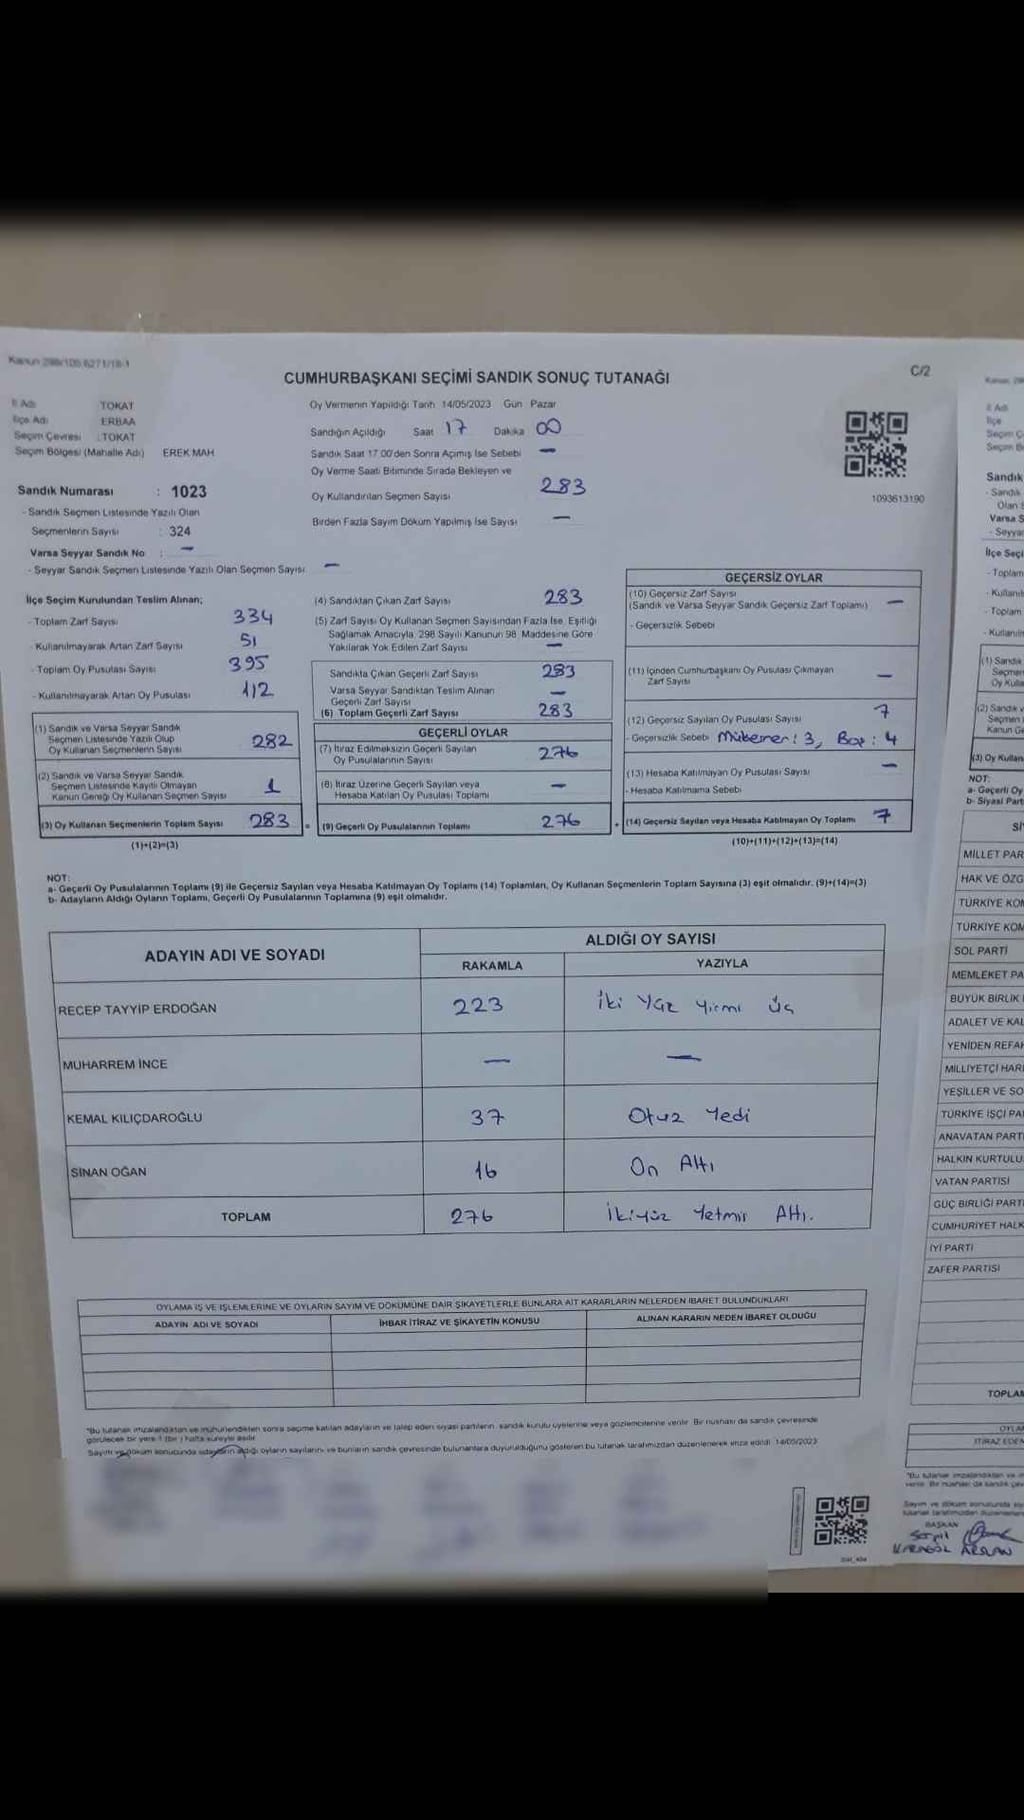 CUMHURBAŞKANI SEÇİMİ SANDIK SONUÇ TUTANAĞI
C/2
İl Adı TOKAT
İlçe Adı ERBAA
Seçim Çevresi : TOKAT
Seçim Bölgesi (Mahalle Adı) EREK MAH
Sandık Numarası : 1023
- Sandık Seçmen Listesinde Yazılı Olan
Seçmenlerin Sayısı : 324
Varsa Seyyar Sandık No : —
- Seyyar Sandık Seçmen Listesinde Yazılı Olan Seçmen Sayısı —
Oy Vermenin Yapıldığı Tarih 14/05/2023 Gün Pazar
Sandığın Açıldığı Saat 17 Dakika 00
Sandık Saat 17.00'den Sonra Açımış İse Sebebi —
Oy Verme Saati Bitiminde Sırada Bekleyen ve
Oy Kullandırılan Seçmen Sayısı 283
Birden Fazla Sayım Döküm Yapılmış İse Sayısı —
1093613190
İlçe Seçim Kurulundan Teslim Alınan;
- Toplam Zarf Sayısı 334
- Kullanılmayarak Artan Zarf Sayısı 51
- Toplam Oy Pusulası Sayısı 395
- Kullanılmayarak Artan Oy Pusulası 112
(1) Sandık ve Varsa Seyyar Sandık
Seçmen Listesinde Yazılı Olup
Oy Kullanan Seçmenlerin Sayısı 282
(2) Sandık ve Varsa Seyyar Sandık
Seçmen Listesinde Kayıtlı Olmayan
Kanun Gereği Oy Kullanan Seçmen Sayısı 1
(3) Oy Kullanan Seçmenlerin Toplam Sayısı 283
(1)+(2)=(3)
(4) Sandıktan Çıkan Zarf Sayısı 283
(5) Zarf Sayısı Oy Kullanan Seçmen Sayısından Fazla İse, Eşitliği
Sağlamak Amacıyla, 298 Sayılı Kanunun 98. Maddesine Göre
Yakılarak Yok Edilen Zarf Sayısı —
Sandıkta Çıkan Geçerli Zarf Sayısı 283
Varsa Seyyar Sandıktan Teslim Alınan
Geçerli Zarf Sayısı —
(6) Toplam Geçerli Zarf Sayısı 283
GEÇERLİ OYLAR
(7) İtiraz Edilmeksizin Geçerli Sayılan
Oy Pusulalarının Sayısı 276
(8) İtiraz Üzerine Geçerli Sayılan veya
Hesaba Katılan Oy Pusulası Toplamı —
(9) Geçerli Oy Pusulalarının Toplamı 276
GEÇERSİZ OYLAR
(10) Geçersiz Zarf Sayısı
(Sandık ve Varsa Seyyar Sandık Geçersiz Zarf Toplamı) —
- Geçersizlik Sebebi
(11) İçinden Cumhurbaşkanı Oy Pusulası Çıkmayan
Zarf Sayısı —
(12) Geçersiz Sayılan Oy Pusulası Sayısı 7
- Geçersizlik Sebebi Mükerrer: 3, Boş: 4
(13) Hesaba Katılmayan Oy Pusulası Sayısı —
- Hesaba Katılmama Sebebi
(14) Geçersiz Sayılan veya Hesaba Katılmayan Oy Toplamı 7
(10)+(11)+(12)+(13)=(14)
NOT:
a- Geçerli Oy Pusulalarının Toplamı (9) ile Geçersiz Sayılan veya Hesaba Katılmayan Oy Toplamı (14) Toplamları, Oy Kullanan Seçmenlerin Toplam Sayısına (3) eşit olmalıdır. (9)+(14)=(3)
b- Adayların Aldığı Oyların Toplamı, Geçerli Oy Pusulalarının Toplamına (9) eşit olmalıdır.
ADAYIN ADI VE SOYADI ALDIĞI OY SAYISI
RAKAMLA YAZIYLA
RECEP TAYYİP ERDOĞAN 223 İki Yüz Yirmi Üç
MUHARREM İNCE — —
KEMAL KILIÇDAROĞLU 37 Otuz Yedi
SİNAN OĞAN 16 On Altı
TOPLAM 276 İkiyüz Yetmiş Altı.
OYLAMA İŞ VE İŞLEMLERİNE VE OYLARIN SAYIM VE DÖKÜMÜNE DAİR ŞİKAYETLERLE BUNLARA AİT KARARLARIN NELERDEN İBARET BULUNDUKLARI
ADAYIN ADI VE SOYADI İHBAR İTİRAZ VE ŞİKAYETİN KONUSU ALINAN KARARIN NEDEN İBARET OLDUĞU
*Bu tutanak imzalandıktan ve mühürlendikten sonra seçime katılan adayların ve talep eden siyasi partilerin, sandık kurulu üyelerine veya gözlemcilerine verilir. Bir nüshası da sandık çevresinde
görülecek bir yere 1 (bir) hafta süreyle asılır.
Sayım ve döküm sonucunda adayların aldığı oyların sayılarını ve bunların sandık çevresinde bulunanlara duyurulduğunu gösteren bu tutanak tarafımızdan düzenlenerek imza edildi. 14/05/2023
İl Adı
İlçe
Sandık
- Sandık
Varsa S
- Seyyar
İlçe Seçi
- Toplam
- Kullanıl
- Toplam
- Kullanılm
(1) Sandık
Seçmen
Oy Kulla
(2) Sandık v
Seçmen
Kanun Ge
(3) Oy Kullan
NOT:
a- Geçerli Oy
b- Siyasi Part
Sİ
MİLLET PAR
HAK VE ÖZG
TÜRKİYE KOM
TÜRKİYE KOM
SOL PARTİ
MEMLEKET PA
BÜYÜK BİRLİK
ADALET VE KAL
YENİDEN REFAH
MİLLİYETÇİ HAR
YEŞİLLER VE SO
TÜRKİYE İŞÇİ PA
ANAVATAN PARTİ
HALKIN KURTULU
VATAN PARTİSİ
GÜÇ BİRLİĞİ PARTİ
CUMHURİYET HALK
İYİ PARTİ
ZAFER PARTİSİ
TOPLAM
OYLA
İTİRAZ EDEN
BAŞKAN
KARAGÖL ARSLAN